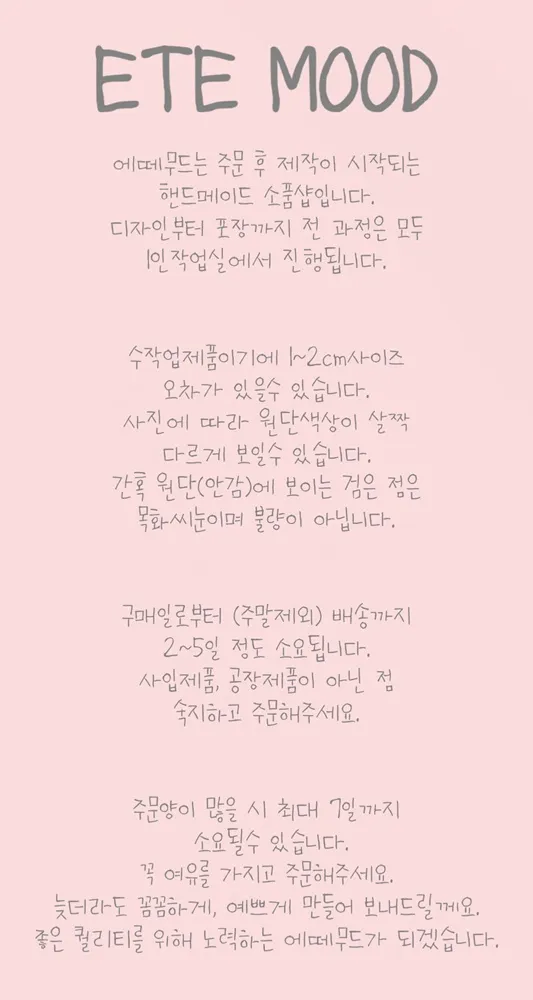 ETE MOOD
에떼무드는 주문 후 제작이 시작되는
핸드메이드 소품샵입니다.
디자인부터 포장까지 전 과정은 모두
1인작업실에서 진행됩니다.
수작업제품이기에 1~2cm사이즈
오차가 있을수 있습니다.
사진에 따라 원단색상이 살짝
다르게 보일수 있습니다.
간혹 원단(안감)에 보이는 검은 점은
목화씨눈이며 불량이 아닙니다.
구매일로부터 (주말제외) 배송까지
2~5일 정도 소요됩니다.
사입제품, 공장제품이 아닌 점
숙지하고 주문해주세요.
주문양이 많을 시 최대 7일까지
소요될수 있습니다.
꼭 여유를 가지고 주문해주세요.
늦더라도 꼼꼼하게, 예쁘게 만들어 보내드릴께요.
좋은 퀄리티를 위해 노력하는 에떼무드가 되겠습니다.